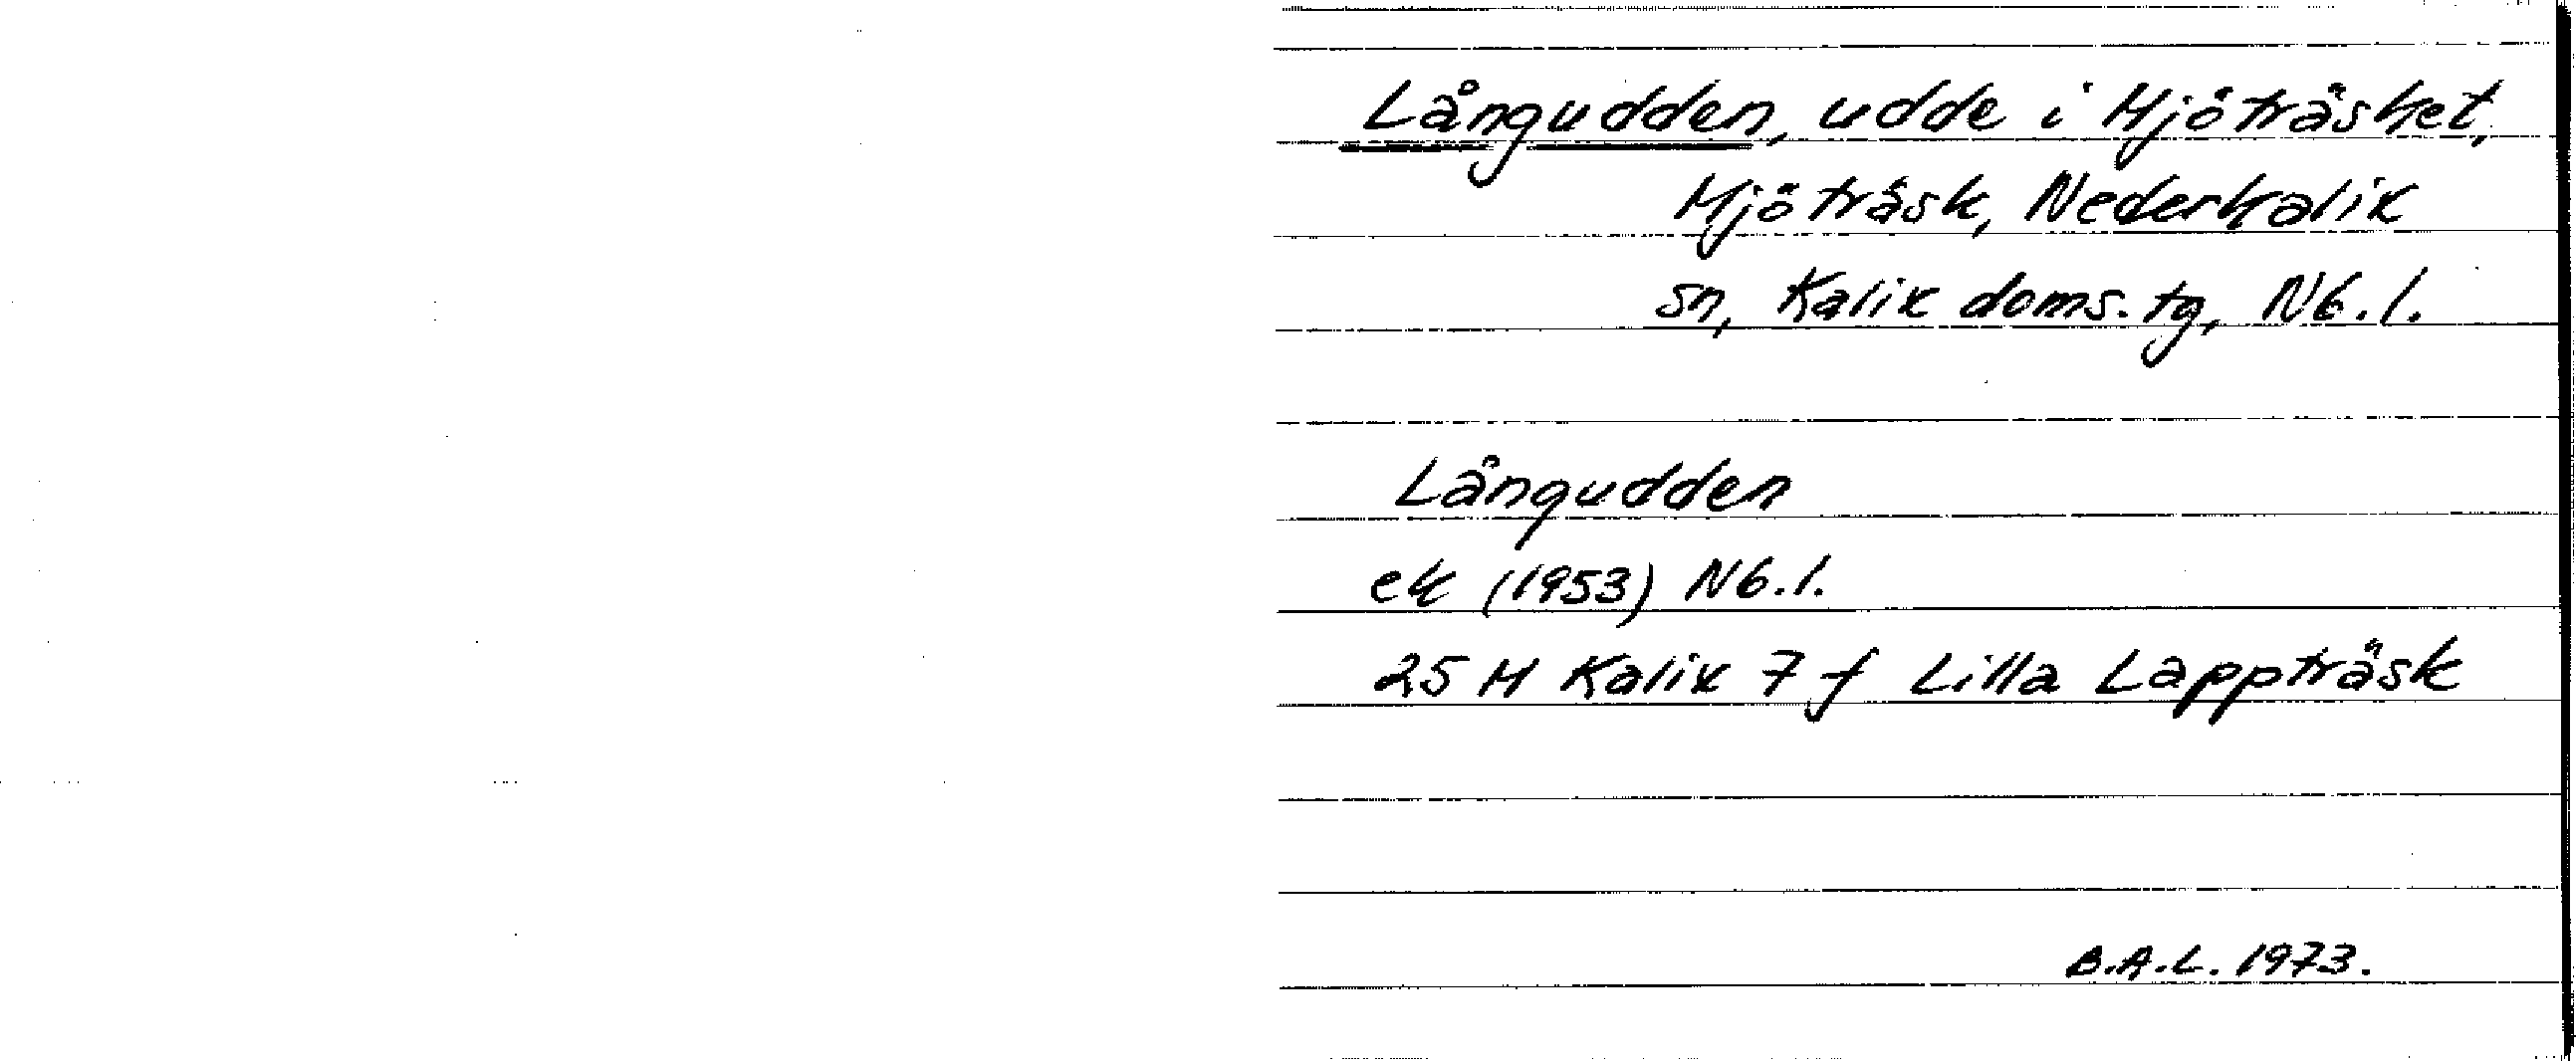 Långudden, udde i Mjöträsket,
Mjöträsk, Nederkalix
sn, Kalix doms. tg, Nb. l.
Långudden
ek (1953) Nb. l.
25 M Kalix 7 f Lilla Lappträsk
B.A.L. 1973.